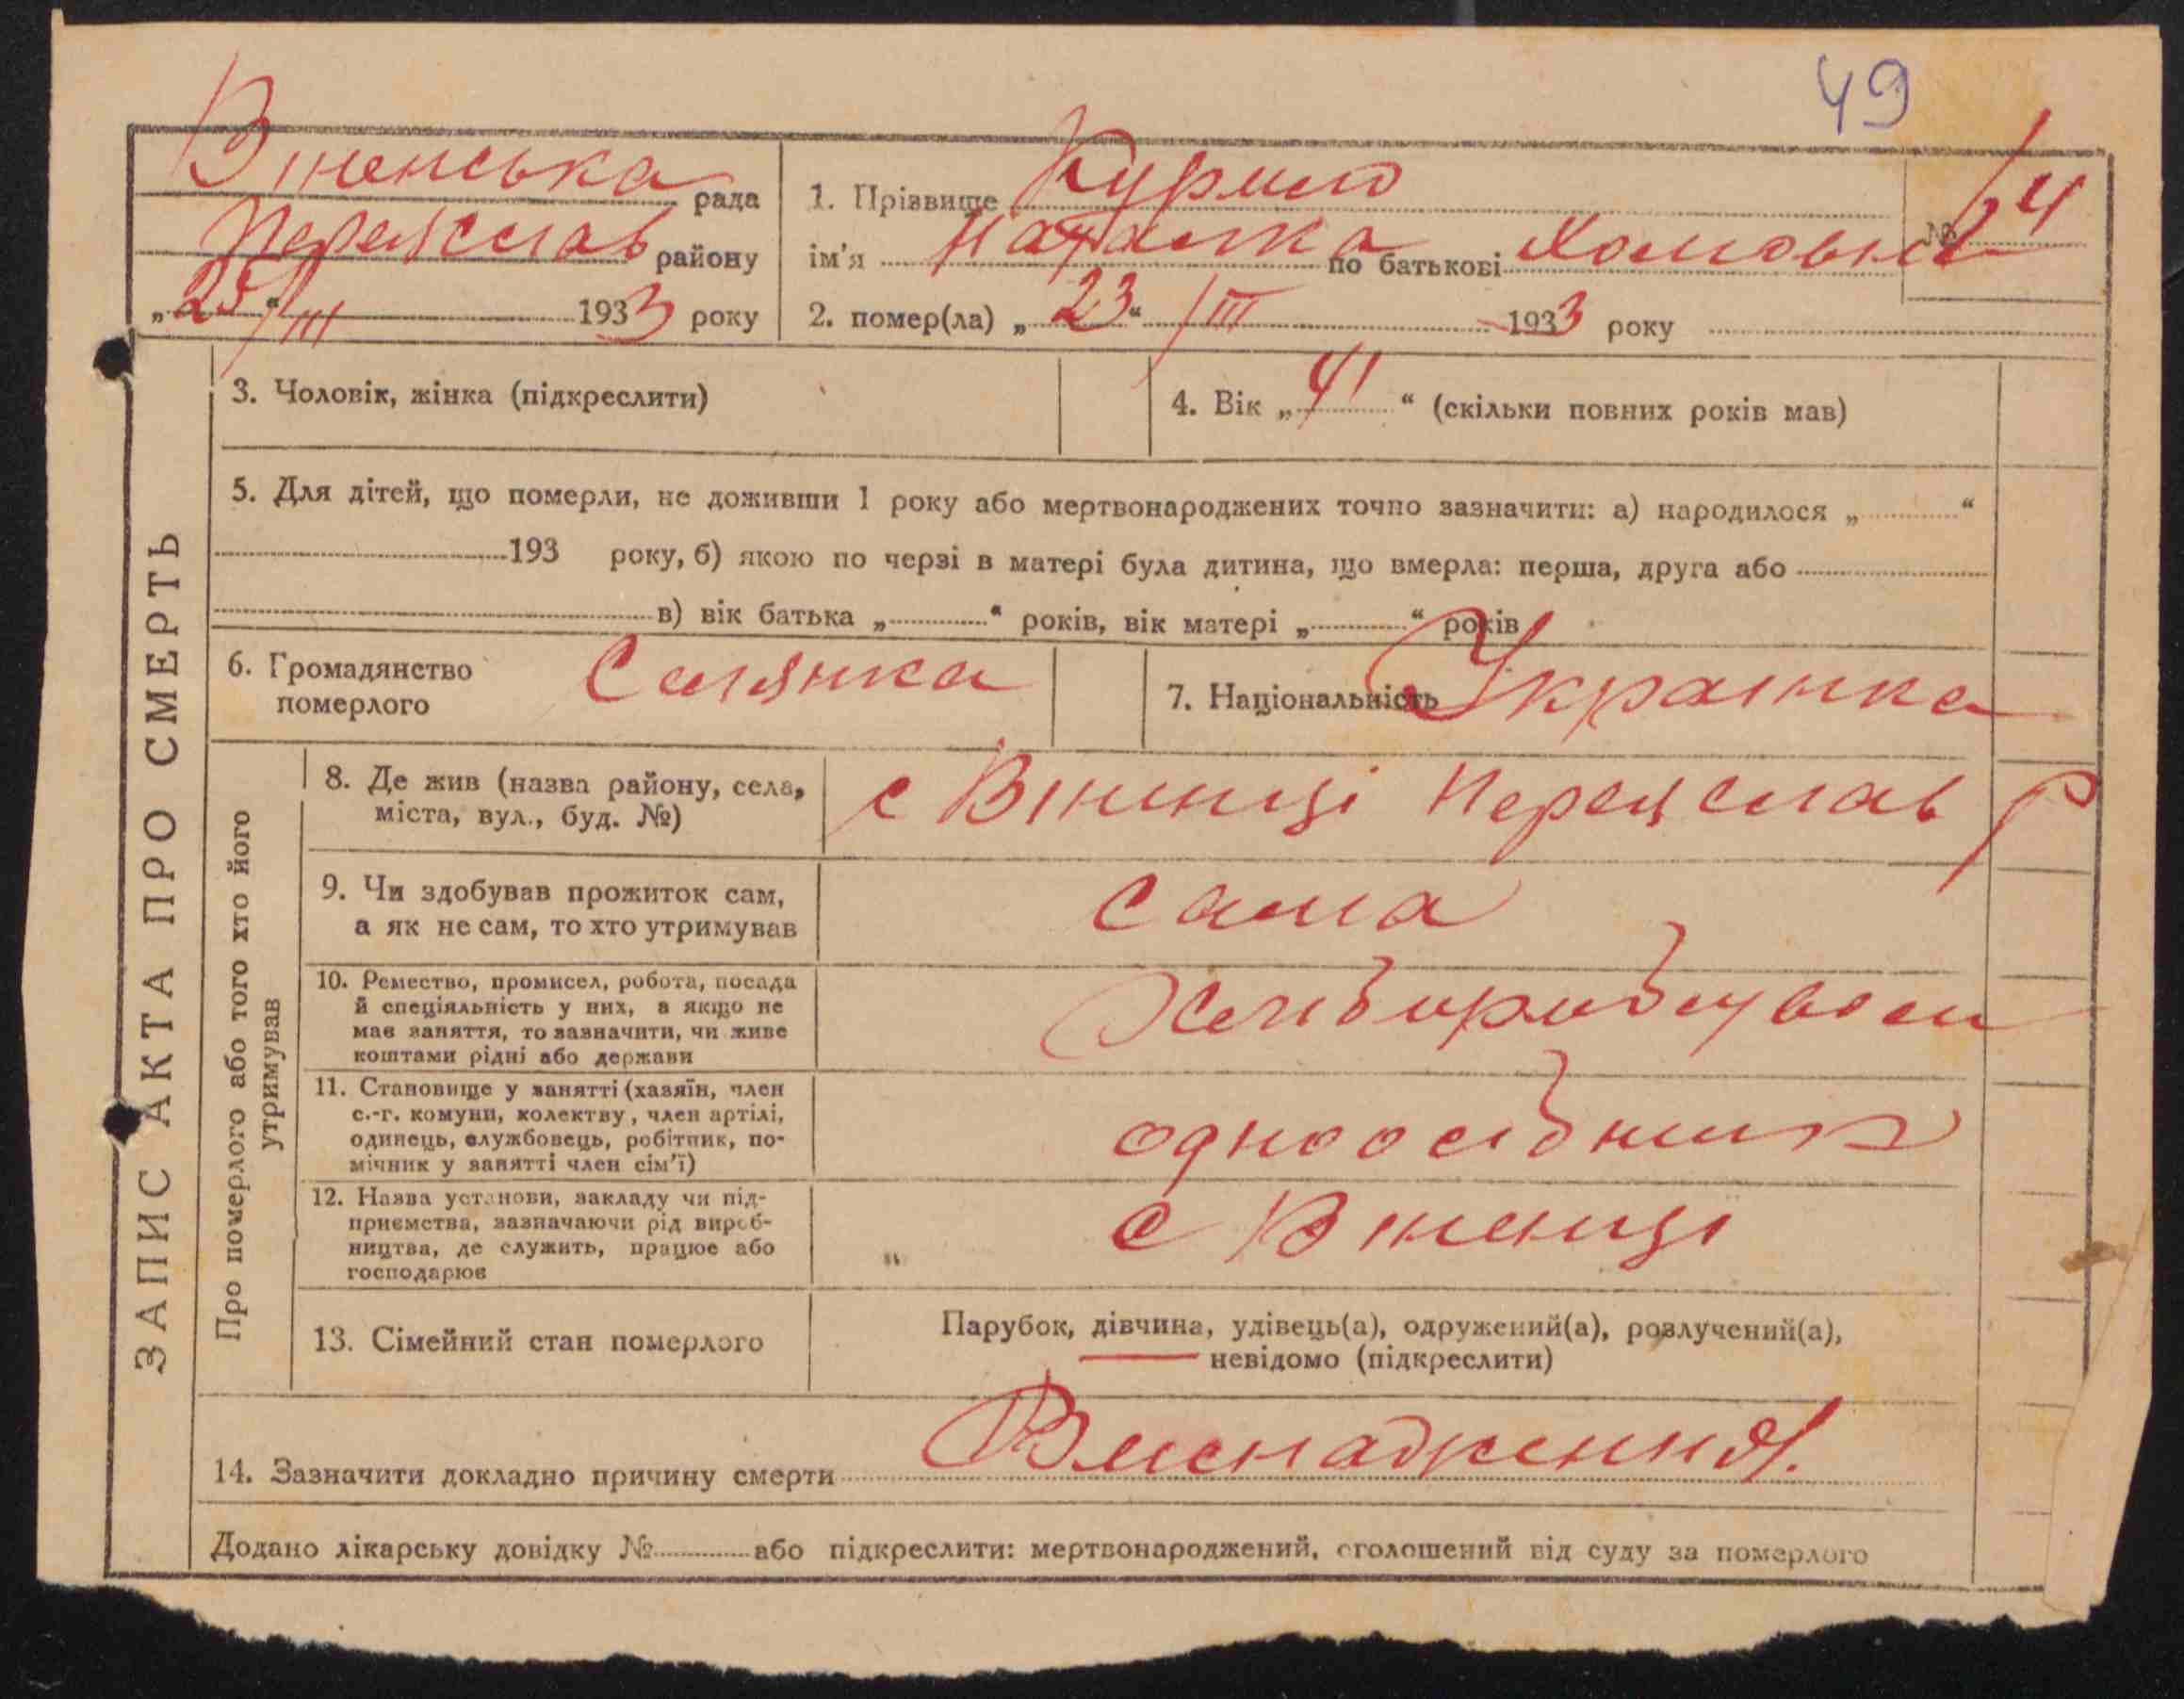 49
Віненська рада
Переяслав району
„25“/III 1933 року
1. Прізвище Курило
№ 24
ім'я Наталка по батькові Хомовна
2. помер(ла) „23“/III 1933 року
3. Чоловік, жінка (підкреслити)
4. Вік „41“ (скільки повних років мав)
5. Для дітей, що померли, не доживши 1 року або мертвонароджених точно зазначити: а) народилося „ “
193 року, б) якою по черзі в матері була дитина, що вмерла: перша, друга або
в) вік батька „ “ років, вік матері „ “ років
6. Громадянство
померлого
Селянка
7. Національність Украінка
ЗАПИС АКТА ПРО СМЕРТЬ
Про померлого або того хто його
утримував
8. Де жив (назва району, села,
міста, вул., буд. №)
с Вінинці Переяслав Р
9. Чи здобував прожиток сам,
а як не сам, то хто утримував
сама
10. Ремество, промисел, робота, посада
й спеціяльність у них, а якщо не
має заняття, то зазначити, чи живе
коштами рідні або держави
11. Становище у занятті (хазяїн, член
с.-г. комуни, колектву, член артілі,
одинець, службовець, робітник, по-
мічник у занятті член сім'ї)
одноосібник
12. Назва установи, закладу чи під-
приємства, зазначаючи рід вироб-
ництва, де служить, працює або
господарює
с Віненці
13. Сімейний стан померлого
Парубок, дівчина, удівець(а), одружений(а), розлучений(а),
невідомо (підкреслити)
14. Зазначити докладно причину смерти Виснадження.
Додано лікарську довідку № або підкреслити: мертвонароджений, оголошений від суду за померлого